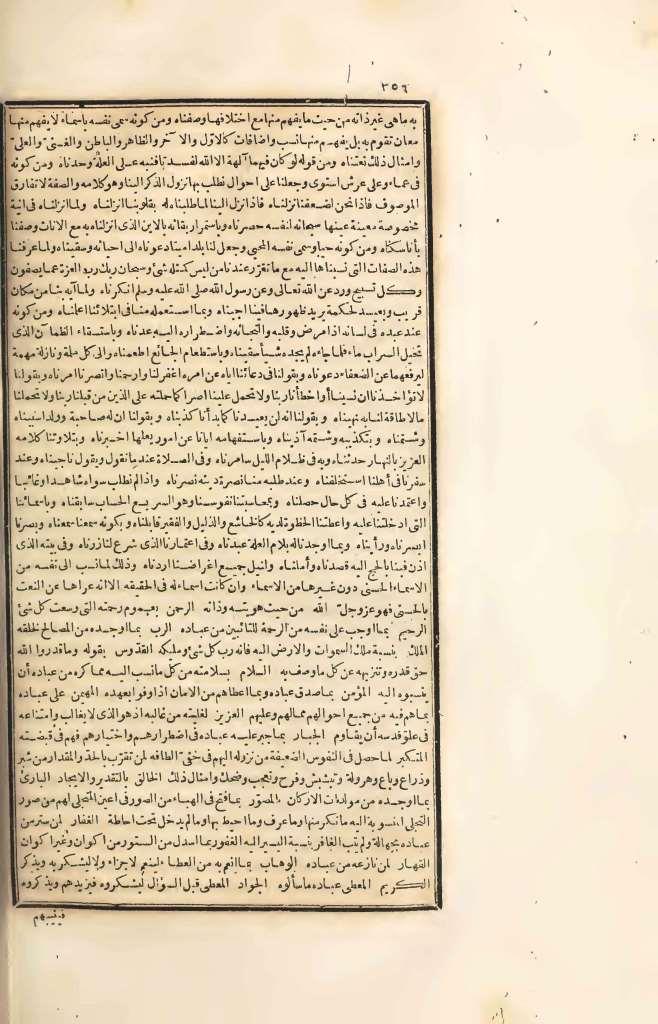 ٣٥٦
به ما هى غير ذاته من حيث ما يفهم منها مع اختلافها وصفناه ومن كونه سمى نفسه باسماء لا يفهم منها
معان تقوم به بل يفهم منها نسب واضافات كالاول والآخر والظاهر والباطن والغنى والعلى
وامثال ذلك نعتناه ومن قوله لو كان فيهما آلهة الا الله لفسدتا فنبه على العلة وحدناه ومن كونه
فى عماء وعلى عرش استوى وجعلنا على احوال نطلب بها نزول الذكر الينا وهو كلامه والصفة لا تفارق
الموصوف فاذا نحن لضعفنا نزلناه فاذا نزل الينا لما طلبناه له بقلوبنا انزلناه ولما انزلناه فى اينية
مخصوصة معينة عينها سبحانه لنفسه حصرناه وباستمرار بقائه بالاين الذى انزلناه به مع الانات وصفنا
بأنا سكناه ومن كونه حيا وسمى نفسه المحيى وجعل لنا بلدا ميتا دعوناه الى احيائه وسقيناه ولما عرفنا
هذه الصفات التى نسبناها اليه مع ما تقرر عندنا من ليس كمثله شئ وسبحان ربك رب العزة عما يصفون
وكل تسبيح ورد عن الله تعالى وعن رسول الله صلى الله عليه وسلم انكرناه ولما أيه بنا من مكان
قريب وبعيد لحكمة يريد ظهورها فينا اجبناه وبما استعمله منا فى ابتلائنا اعلمناه ومن كونه
عند عبده فى لسانه اذا مرض وقلبه والتجائه واضطراره اليه عدناه وباستسقاء الظمآن الذى
تخيل السراب ماء فلما جاءه لم يجده شيأ سقيناه وباستطعام الجائع اطعمناه والى كل ملمة ونازلة مهمة
ليرفعها عن الضعفاء دعوناه وبقولنا فى دعائنا اياه عن امره اغفر لنا وارحمنا وانصرنا امرناه وبقولنا
لا تؤاخذنا ان نسينا أو اخطأنا ربنا ولا تحمل علينا اصرا كما حملته على الذين من قبلنا ربنا ولا تحملنا
ما لا طاقة لنا به نهيناه وبقولنا انه لن يعيدنا كما بدأنا كذبناه وبقولنا ان له صاحبة وولدا سببناه
وشتمناه وبتكذيبه وشتمه آذيناه وباستفهامه ايانا عن امور يعلمها اخبرناه وبتلاوتنا كلامه
العزيز بالنهار حدثناه وبه فى ظلام الليل سامرناه وفى الصلاة عند ما نقول ويقول ناجيناه وعند
سفرنا فى أهلنا استخلفناه وعند طلبه منا نصرة دينه نصرناه واذا لم نطلب سواه شاهدا وغائبا
واعتمدنا عليه فى كل حال حصلناه وبمحاسبتنا نفوسنا وهو السريع الحساب سابقناه وباسمائنا
التى ادخلتنا عليه واعطتنا الحظوة لديه كالخاشع والذليل والفقير قابلناه وبكونه سمعنا سمعناه وبصرنا
ابصرناه ورأيناه وبما اوجدنا له بلام العلة عبدناه وفى اعتمارنا الذى شرع لنا زرناه وفى بيته الذى
اذن فينا بالحج اليه قصدناه وأملناه ولنيل جميع اغراضنا اردناه وذلك لما نسب الى نفسه من
الاسماء الحسنى دون غيرها من الاسماء وان كانت اسماء له فى الحقيقه الا انه عراها عن النعت
بالحسنى فهو عز وجل الله من حيث هويته وذاته الرحمن بعموم رحمته التى وسعت كل شئ
الرحيم بما اوجب على نفسه من الرحمة للتائبين من عباده الرب بما اوجده من المصالح لخلقه
الملك بنسبة ملك السموات والارض اليه فانه رب كل شئ ومليكه القدوس بقوله وما قدروا الله
حق قدره وتنزيهه عن كل ما وصف به السلام بسلامته من كل ما نسب اليه مما كره من عباده أن
ينسبوه اليه المؤمن بما صدق عباده وبما اعطاهم من الامان اذا وفوا بعهده المهيمن على عباده
بما هم فيه من جميع احوالهم مما لهم وعليهم العزيز لغلبته من غالبه اذ هو الذى لا يغالب وامتناعه
فى علو قدسه أن يقاوم الجبار بما جبر عليه عباده فى اضطرارهم واختيارهم فهم فى قبضته
المتكبر لما حصل فى النفوس الضعيفة من نزوله اليهم فى خفى الطافه لمن تقرب بالحد والمقدار من شبر
وذراع وباع وهرولة وتبشبش وفرح وتعجب وضحك وامثال ذلك الخالق بالتقدير والايجاد البارئ
بما اوجده من مولدات الاركان المصور بما فتح فى الهباء من الصور فى اعين المتجلى لهم من صور
التجلى المنسوبة اليه ما نكر منها وما عرف وما احيط بها وما لم يدخل تحت احاطة الغفار لمن ستر من
عباده بجهالة ولم يتب الغافر بنسبة اليسير اليه الغفور بما اسدل من الستور من اكوان وغير اكوان
القهار لمن نازعه من عباده الوهاب بما انعم به من العطاء لينعم لا جزاء ولا ليشكر به ويذكر
الكريم المعطى عباده ما سألوه الجواد المعطى قبل السؤال ليشكروه فيزيدهم ويذكروه
فيثيبهم